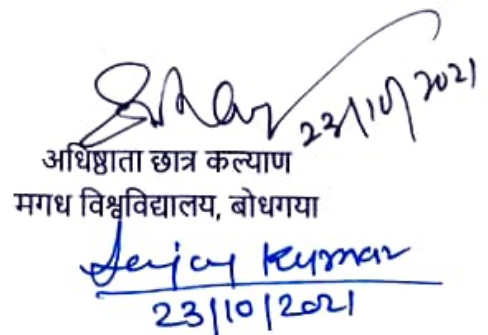 23/10/2021
अधिष्ठाता छात्र कल्याण
मगध विश्वविद्यालय, बोधगया
Sanjay Kumar
23/10/2021